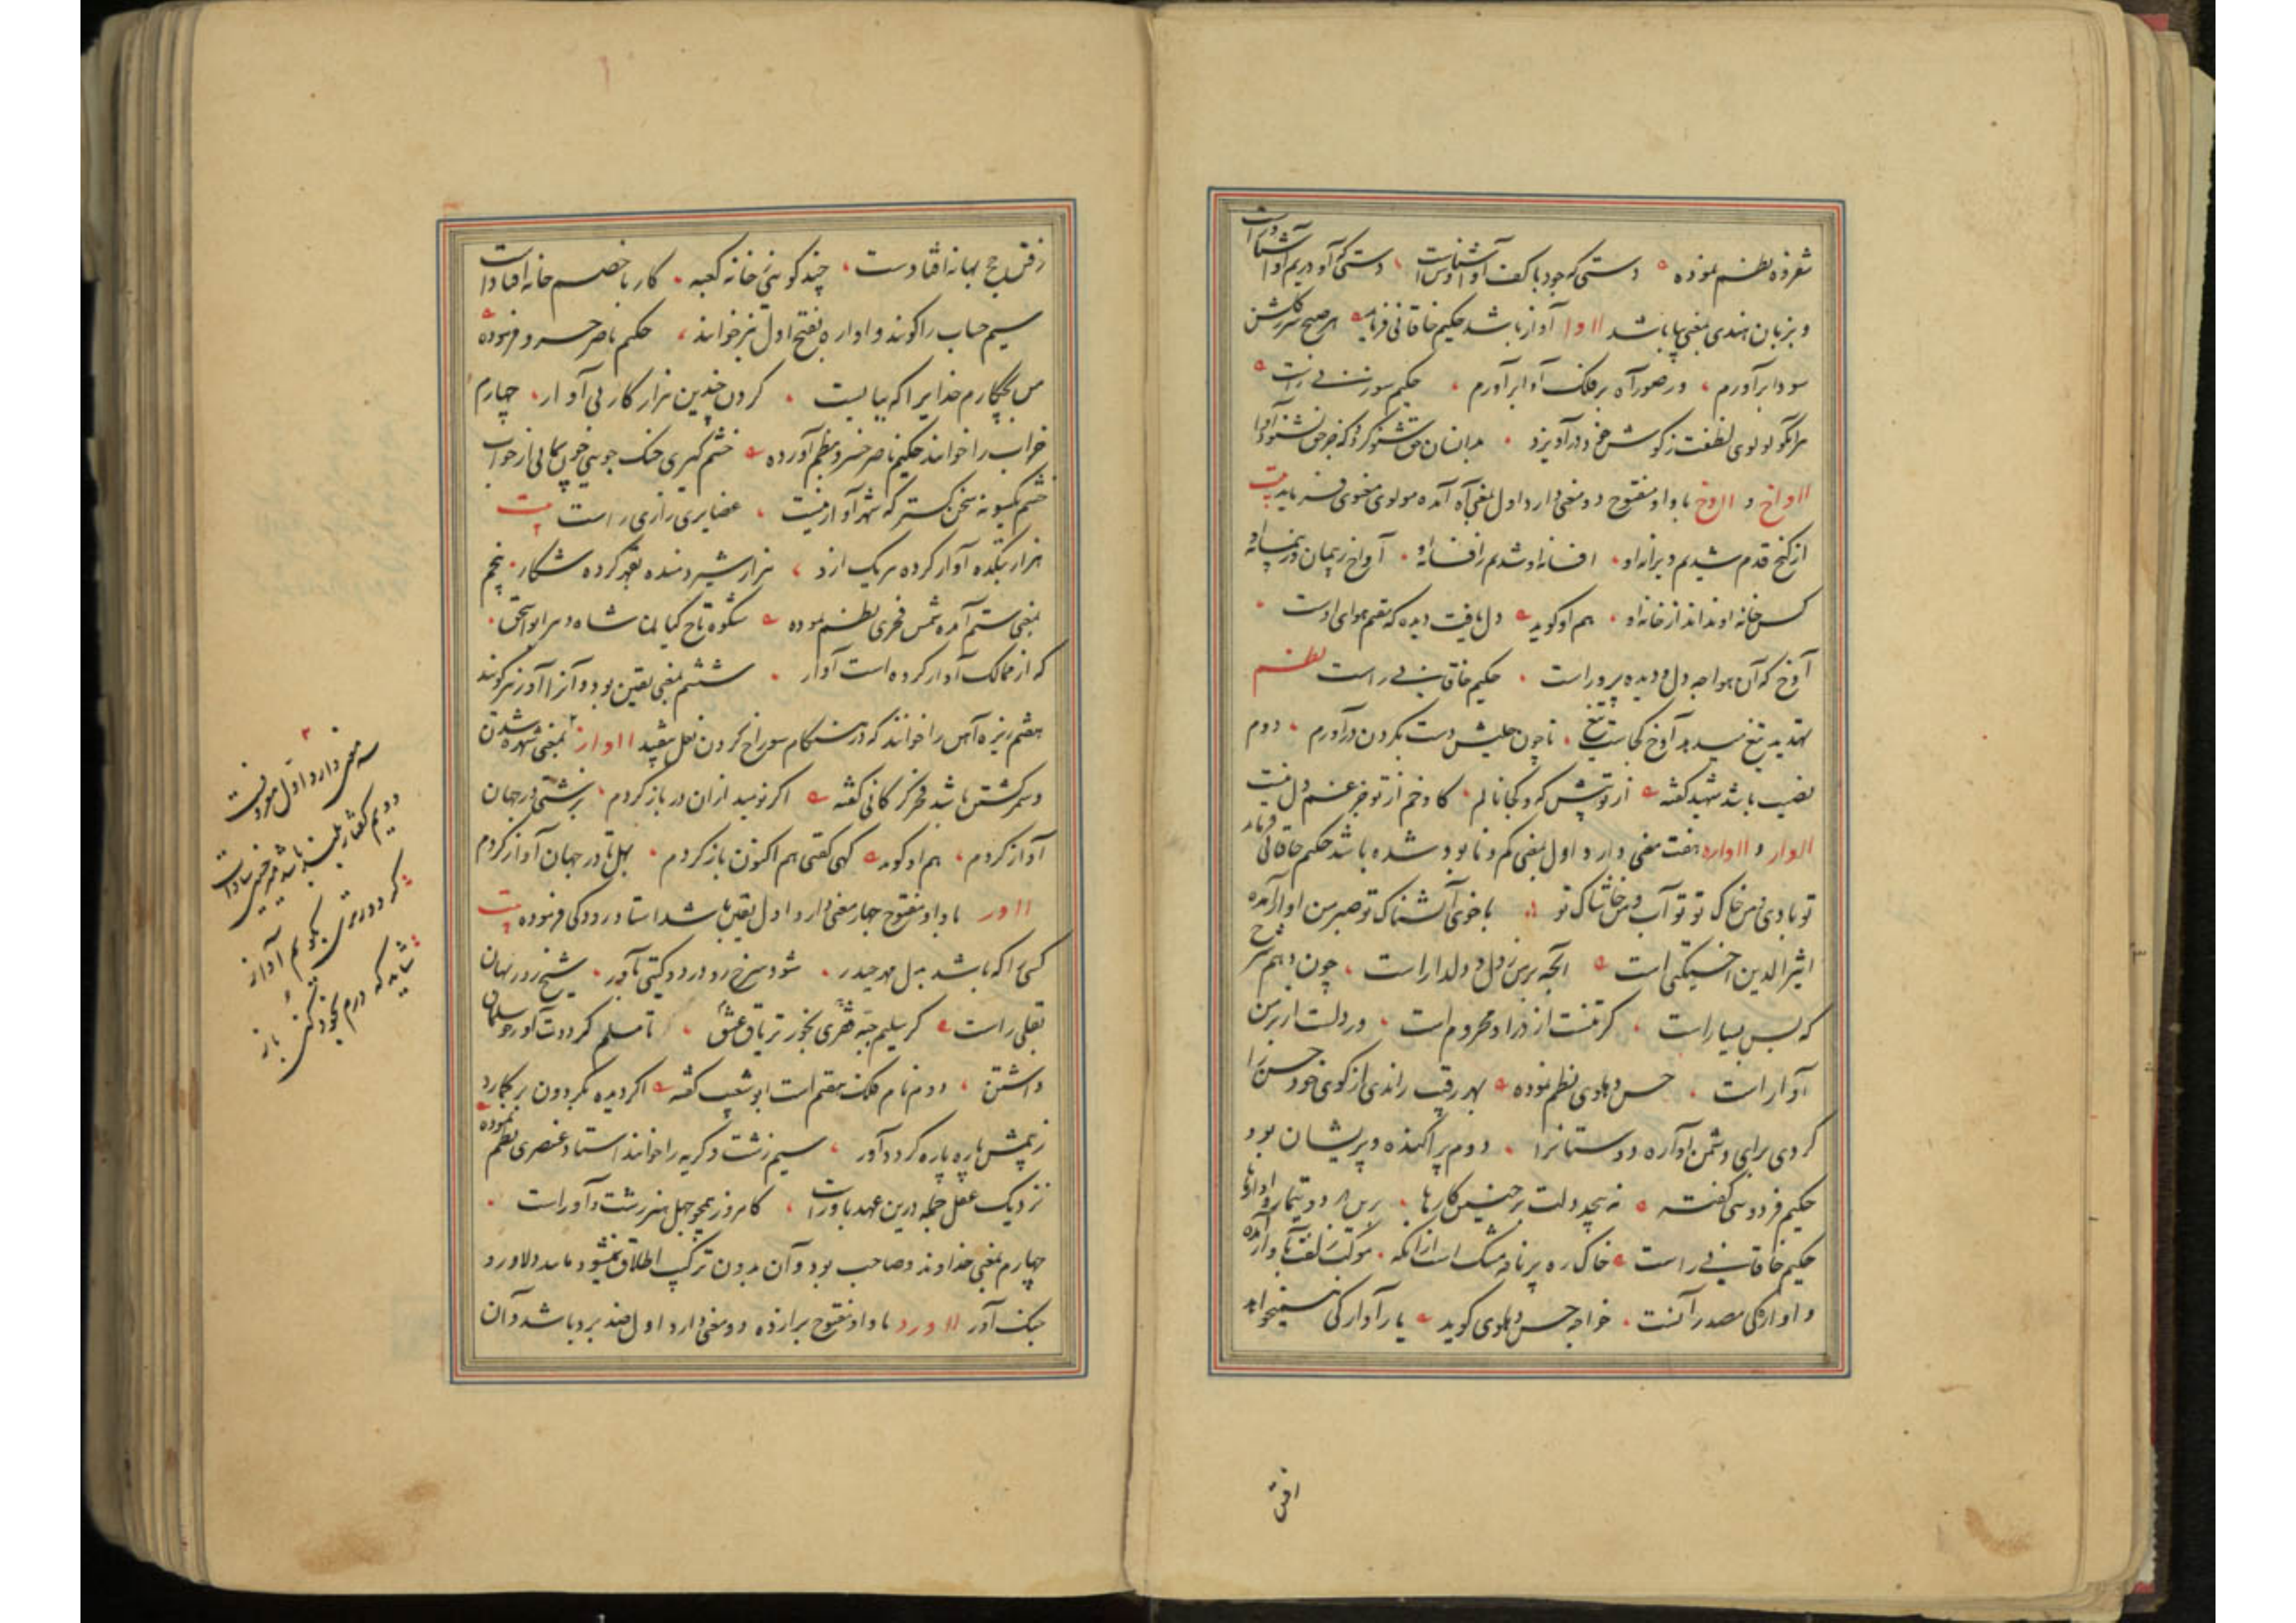 شعر فوه نظم نموده دستی که جود با کف او آشناست دستی که آو دریم او آشنا است
و بزبان هندی بمعنی بیا باشد ااوا آواز باشد حکیم خاقانی فرماید هر صبح سر ز گلشن
سودا برآورم وز صور آه بر فلک آوا برآورم حکیم سوزنی راست
هر آنکو لولوی لفظت ز گوش خود درآویزد بدانسان حق شنو گردد که جز حق نشنود آوا
ااواخ و ااوخ با واو مفتوح دو معنی دارد اول بمعنی آه آمده مولوی معنوی فرماید بیت
از گنج قدم شدیم ویرانه او افسانه او شدیم افسانه او آواخ ز پیمان و ز پیمانه او
کس خانه او نداند از خانه او هم او گوید دل یافت دیده که مقیم هوای اوست
آوخ که آن هوا چه دل و دیده پرور است حکیم خاقانی راست نظم
تهدید تیغ میدهد آوخ کجاست تیغ تا چون حلیش دست بگردن درآورم دوم
نصیب باشد شهید گفته از تو پیش که و کجا نالم کاوخم از تو جز غم دل نیست
ااوار و ااواره هفت معنی دارد اول بمعنی گم و نابود شده باشد حکیم خاقانی فرماید
تو بادی و من خاک تو تو آب و من خاشاک تو با خوی آتشناک تو صبر من آوار آمده
اثیرالدین اخسیکتی است آنچه بر من ز دل و دلدار است چون دهم شرح
که بس بسیار است گر تنست از در او محروم است ور دلست از بر من
آوار است حسن دهلوی نظم نموده بهر رقیب راندی از کوی خود حسن را
کردی برای دشمن آواره دوستانرا دوم پراکنده و پریشان بود
حکیم فردوسی گفته نه پیچد دلت بر چنین کارها
حکیم خاقانی راست خاک ره پر نافه مشک است از آنکه موکب زلفت به آوار آمده
و آوارگی مصدر آنست خواجه حسن دهلوی گوید یار آوارگی همی‌خواهد
افتن
رفتن حج بهانه افتادست چند گوئی خانه کعبه کار با خصم خانه افتادست
سیم حساب را گویند و اواره بفتح اول نیز خوانند حکیم ناصر خسرو فرموده
من بچکارم خدایرا که ببایست کردن چندین هزار کار بی آوار چهارم
خراب را خوانند حکیم ناصر خسرو بنظم آورده
غضایری رازی راست بیت
هزار بتکده آوار کرده هر یک ازد هزار شیر دمنده بقهر کرده شکار پنجم
بمعنی ستم آمده شمس فخری نظم نموده شکوه تاج کیان شاه دهر ابواسحق
که از ممالک آوار کرده است آوار ششم بمعنی یقین بود و آنرا آور نیز گویند
هفتم ریزه آهن را خوانند که در هنگام سوراخ کردن نعل بیفتد ااواز بمعنی شهره شدن
و سمر گشتن باشد فخر گرگانی گفته اگر نومید ازان در باز گردم بزشتی در جهان
آواز گردم هم او گوید کهی گفتی هم اکنون باز گردم بهل تا در جهان آواز گردم
ااور با واو مفتوح چهار معنی دارد اول یقین باشد استاد رودکی فرموده بیت
کسی را که باشد بدل مهر حیدر شود سرخ رو در دو گیتی بآور شیخ روزبهان
بقلی راست
داشتن دوم نام فلک هفتم است ابو شعیب گفته اگر دیده بگردون برگمارد
ز بیمش پاره پاره گردد آور سیم زشت و کریه را خوانند استاد عنصری نظم نموده
نزدیک عقل جمله درین عهد باور است کامروز همچو جهل هنر زشت و آور است
چهارم بمعنی خداوند و صاحب بود و آن بدون ترکیب اطلاق نمیشود مانند دلاور و
جنگ آور ااورد با واو مفتوح برا زده دو معنی دارد اول جنگ و نبرد باشد و آن
سه معنی دارد اول معروفست
گر دورتری بگویم آواز
شاید که درم بخود کنی باز